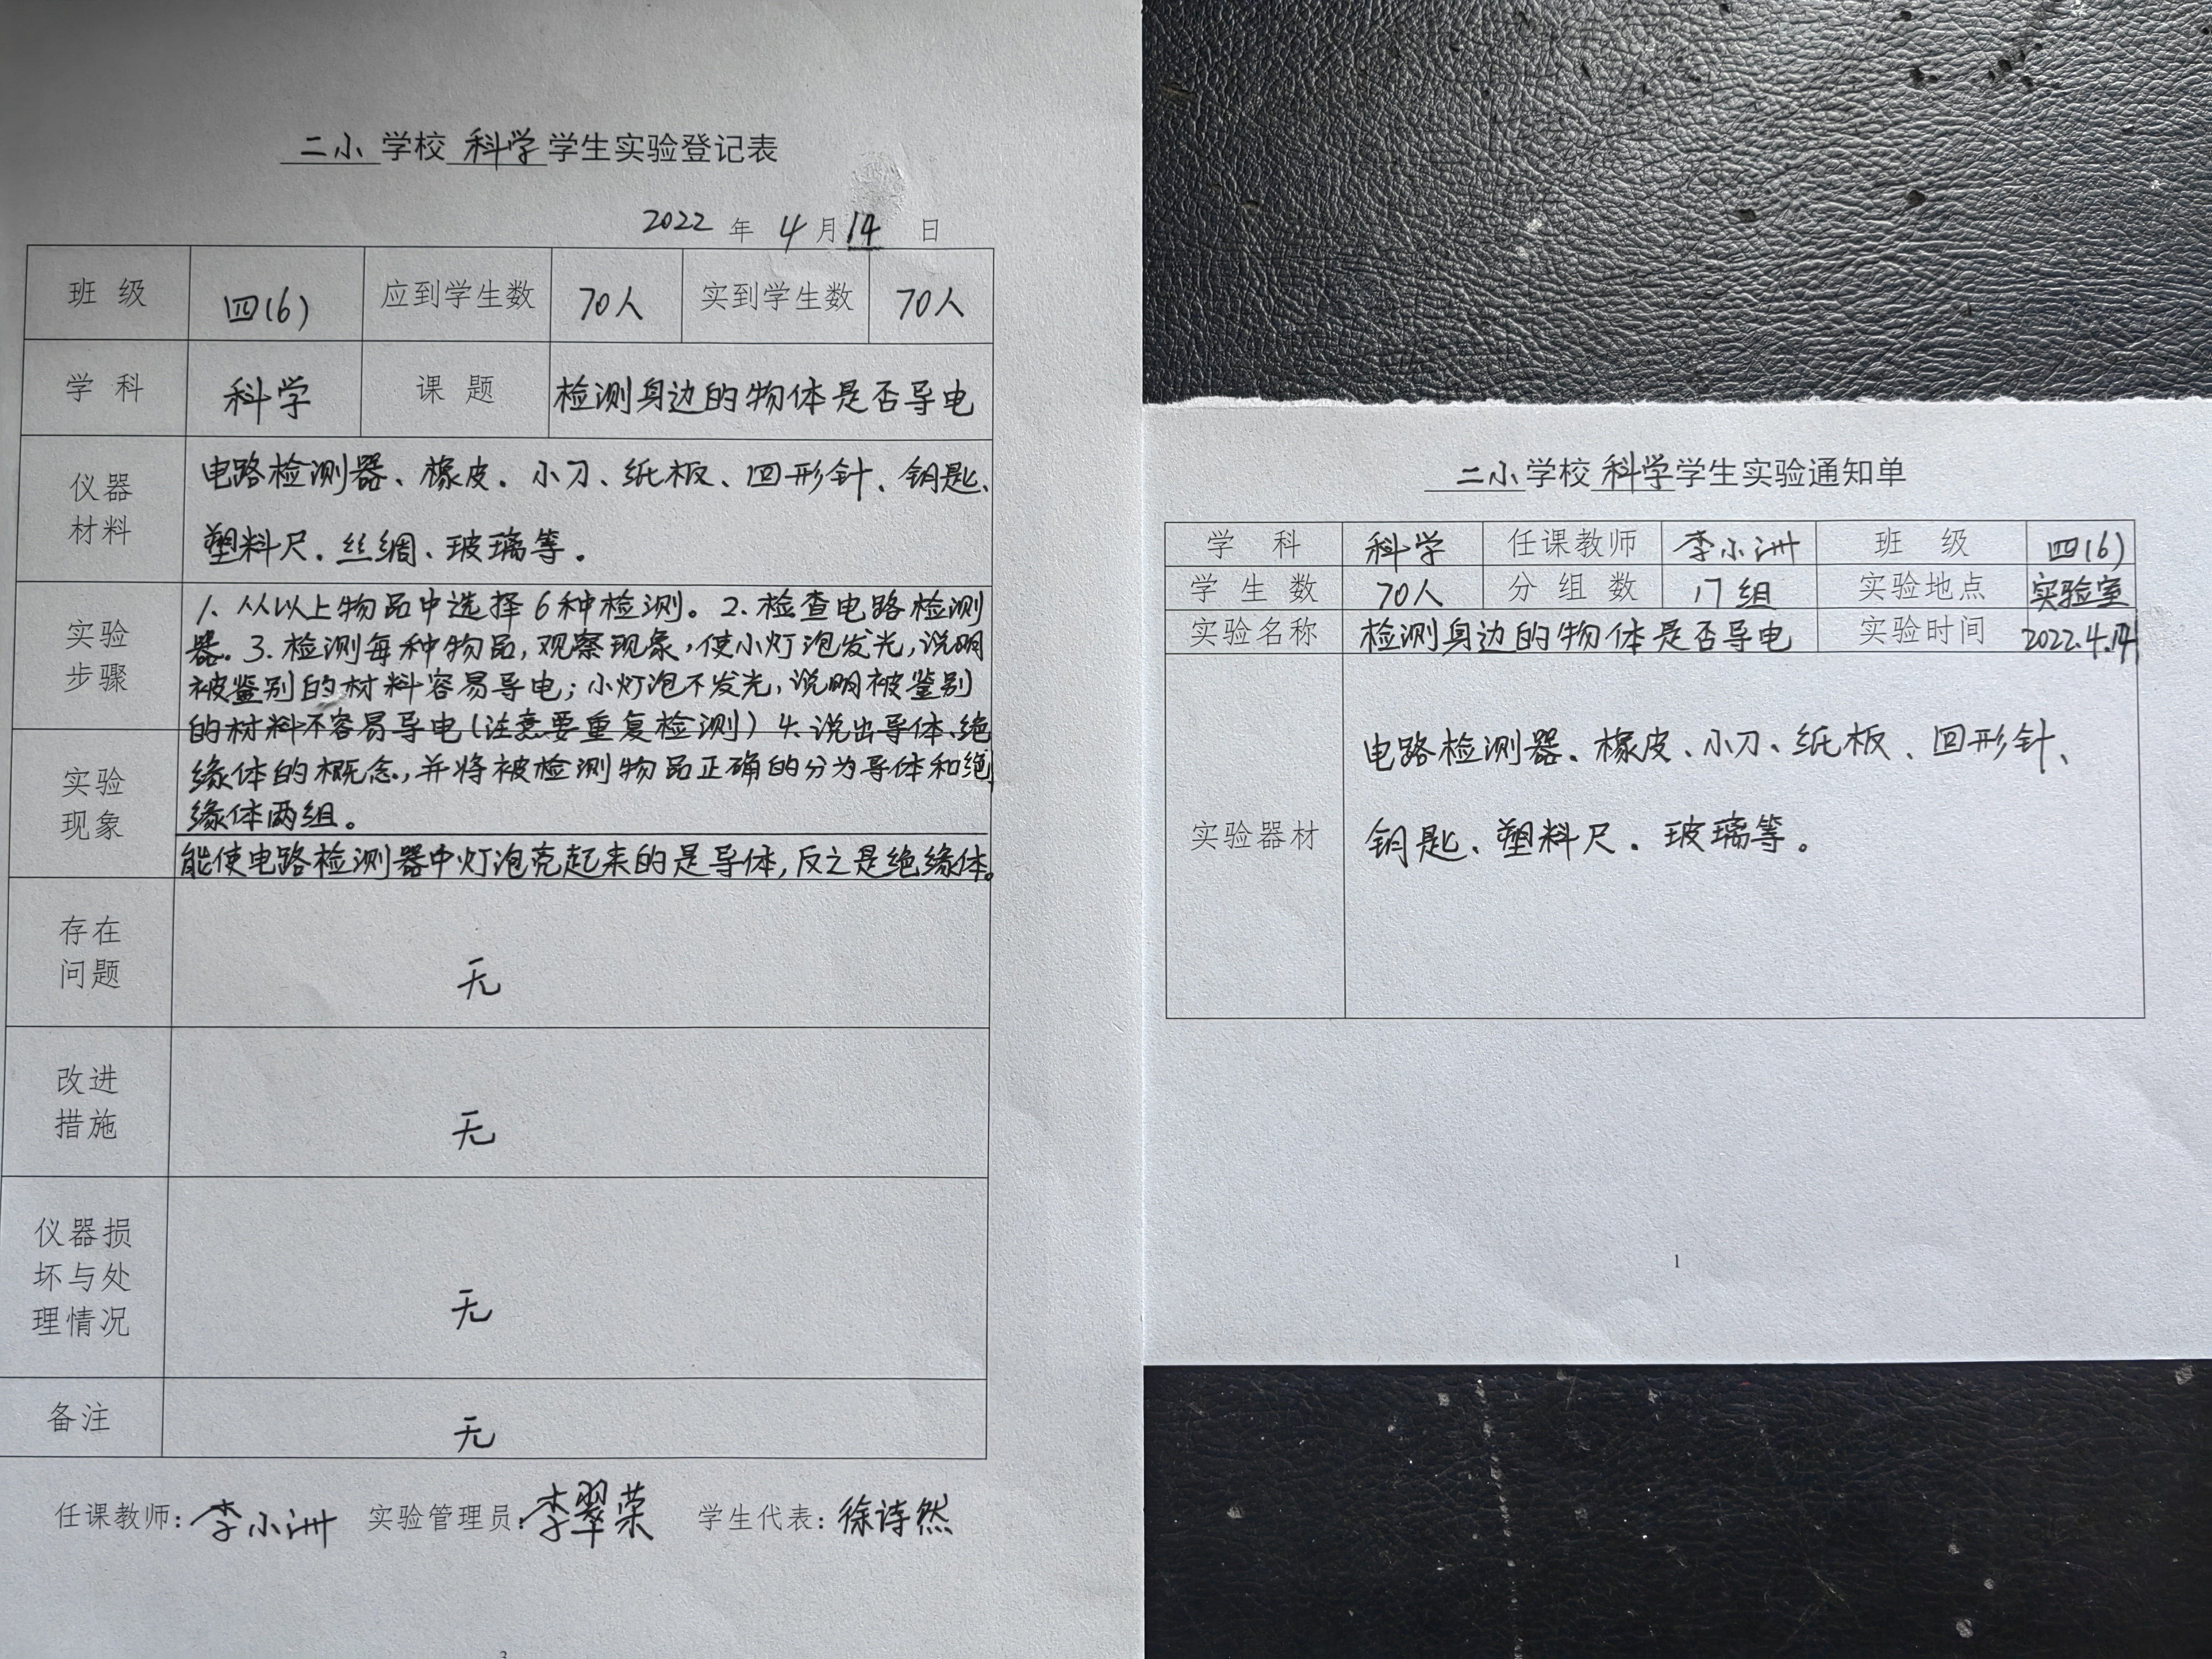 二小 学校 科学 学生实验登记表
2022 年 4 月 14 日
班 级 四(6) 应到学生数 70人 实到学生数 70人
学 科 科学 课 题 检测身边的物体是否导电
仪器材料 电路检测器、橡皮、小刀、纸板、回形针、钥匙、
塑料尺、丝绸、玻璃等。
实验步骤 1、从以上物品中选择6种检测。2、检查电路检测
器。3、检测每种物品,观察现象,使小灯泡发光,说明
被鉴别的材料容易导电;小灯泡不发光,说明被鉴别
的材料不容易导电(注意要重复检测)4、说出导体、绝
缘体的概念,并将被检测物品正确的分为导体和绝
缘体两组。
实验现象 能使电路检测器中灯泡亮起来的是导体,反之是绝缘体。
存在问题 无
改进措施 无
仪器损坏与处理情况 无
备注 无
任课教师:李小洲 实验管理员:李翠荣 学生代表:徐诗然
3
二小 学校 科学 学生实验通知单
学 科 科学 任课教师 李小洲 班 级 四(6)
学 生 数 70人 分 组 数 17组 实验地点 实验室
实验名称 检测身边的物体是否导电 实验时间 2022.4.14
实验器材 电路检测器、橡皮、小刀、纸板、回形针、
钥匙、塑料尺、玻璃等。
1